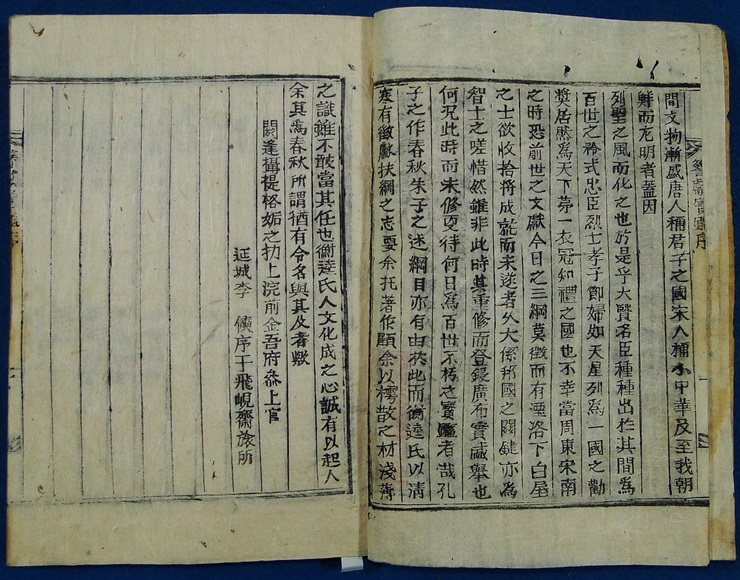 間文物漸盛唐人稱君子之國宋人稱小中華及至我朝
鮮而尤明者蓋因
列聖之風而化之也於是乎大賢名臣種種出於其間為
百世之衿式忠臣烈士孝子節婦如天星列為一國之勸
獎居然為天下第一衣冠知禮之國也不幸當周東宋南
之時恐前世之文獻今日之三綱莫徵而有湮洛下白屋
之士欲收拾將成就而未遂者久大係邦國之關鍵亦為
智士之嗟惜然雖非此時其重修而登銀廣布實諴舉也
何況此時而未修更待何日為百世不朽之寶鑑者哉孔
子之作春秋朱子之述綱目亦有由於此而衡逵氏以淸
寒有徽猷扶綱之志要余托著作顧余以樗散之材淺薄
之識雖不敢當其任也衡逵氏人文化成之心誠有以起人
余其為春秋所謂猶有令名與其及者歟
閼逢攝提格姤之初上浣前金吾府叅上官
延城李 序于飛峴齋旅所
序